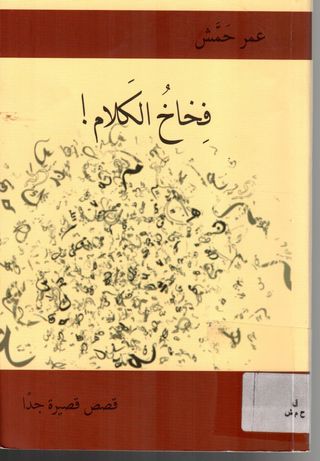 عمر حَمَّش
فِخاخُ الكَلام !
قصص قصيرة جدًا
ق
ح م ش